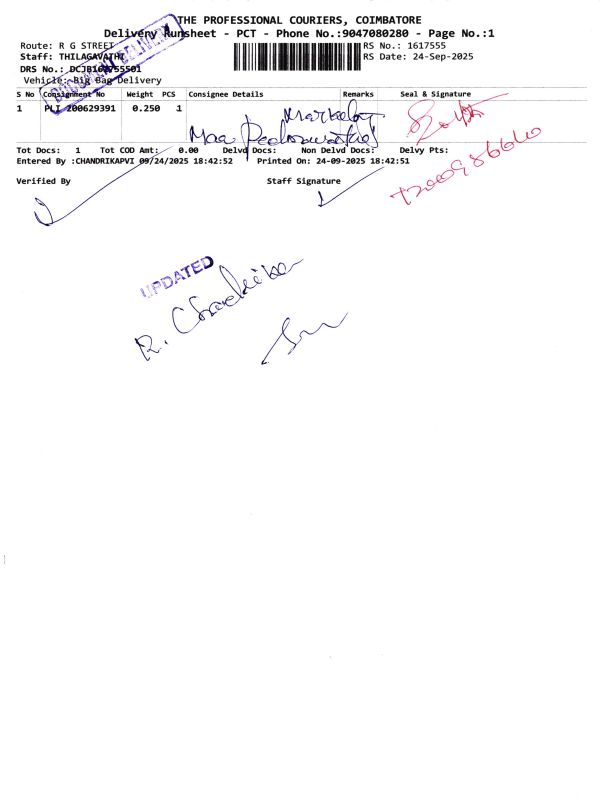 THE PROFESSIONAL COURIERS, COIMBATORE
Delivery Runsheet - PCT - Phone No.:9047080280 - Page No.:1
Route: R G STREET
RS No.: 1617555
Staff: THILAGAVATHI
RS Date: 24-Sep-2025
DRS No.: DCJB161755501
DOCUMENT DELIVERY
Vehicle: Big Bag Delivery
S No Consignment No Weight PCS Consignee Details Remarks Seal & Signature
1 PLI 200629391 0.250 1
Marketing
Tot Docs: 1 Tot COD Amt: 0.00 Delvd Docs: Non Delvd Docs: Delvy Pts:
Entered By :CHANDRIKAPVI 09/24/2025 18:42:52 Printed On: 24-09-2025 18:42:51
Verified By Staff Signature
UPDATED
R. Chandrika